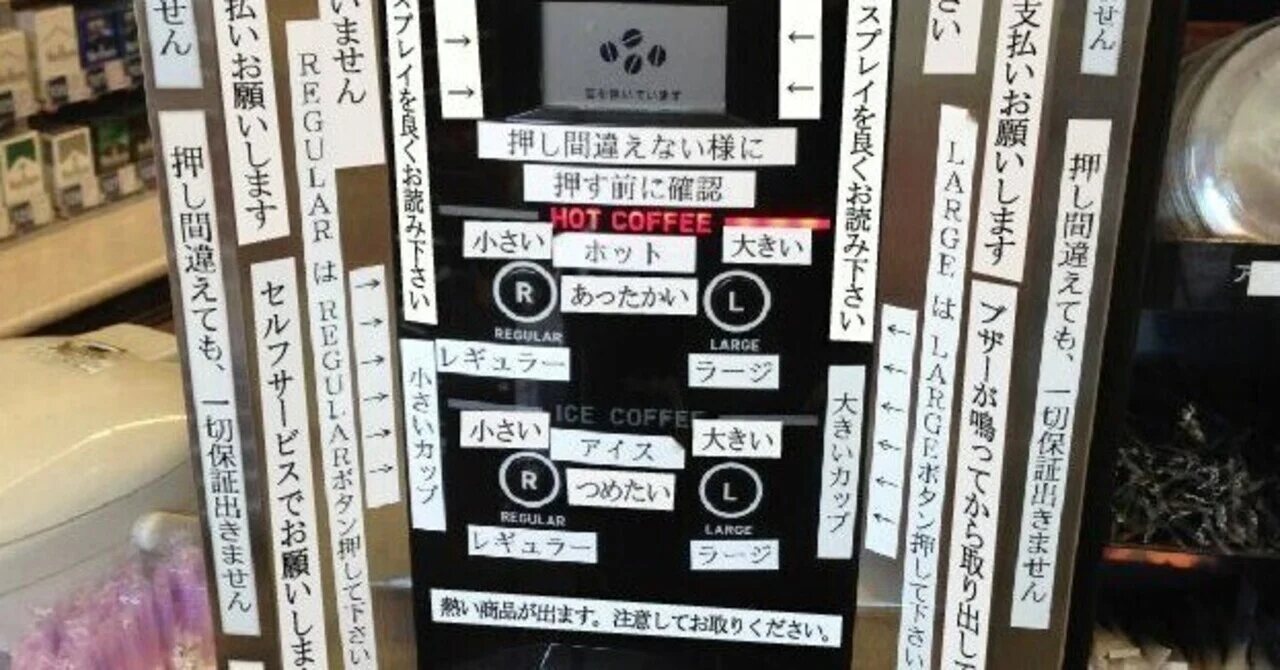 せん
押し間違えても、一切保証出きません
支払いお願いします
セルフサービスでお願いしま
いません
REGULAR は REGULARボタン押して下さい
→
→
→
→
→
→
スプレイを良くお読み下さい
小さいカップ
→
→
豆を挽いています
←
←
押し間違えない様に
押す前に確認
HOT COFFEE
小さい
ホット
大きい
R
あったかい
L
REGULAR
LARGE
レギュラー
ラージ
ICE COFFEE
小さい
アイス
大きい
R
つめたい
L
REGULAR
LARGE
レギュラー
ラージ
熱い商品が出ます。注意してお取りください。
スプレイを良くお読み下さい
大きいカップ
←
←
←
←
←
←
さい
LARGE は LARGEボタン押して下さい
支払いお願いします
ブザーが鳴ってから取り出し下
せん
押し間違えても、一切保証出きません
ア